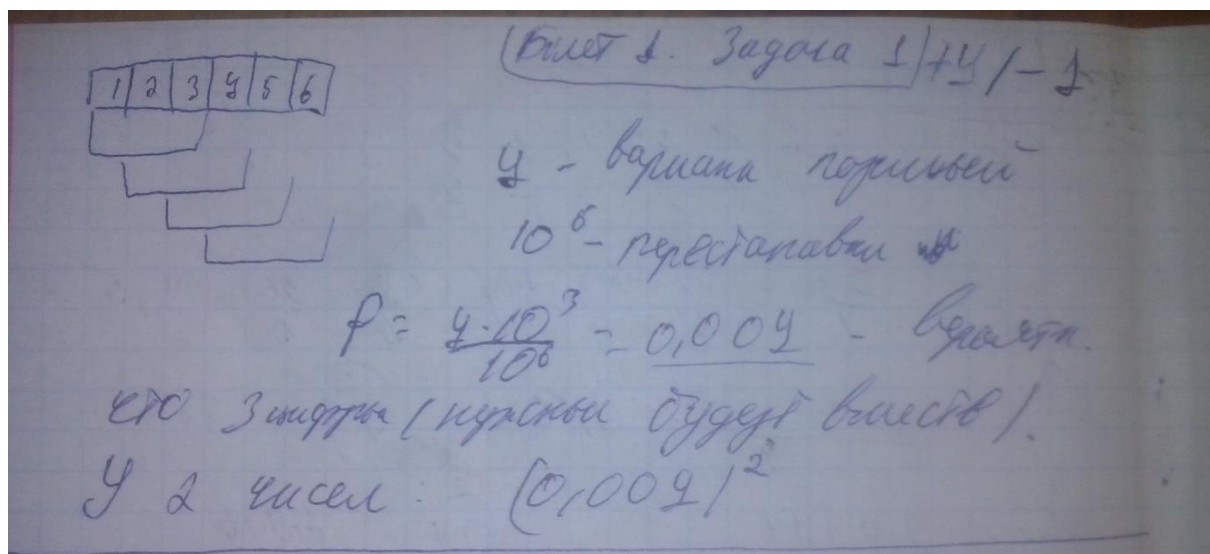 Билет 1. Задача 1) +4/-1
1 2 3 4 5 6
4 - варианта позиций
10⁶ - перестановки
P = 4·10³ / 10⁶ = 0,004 - вероятн.
что 3 цифры (нужные будут вместе).
У 2 чисел. (0,004)²